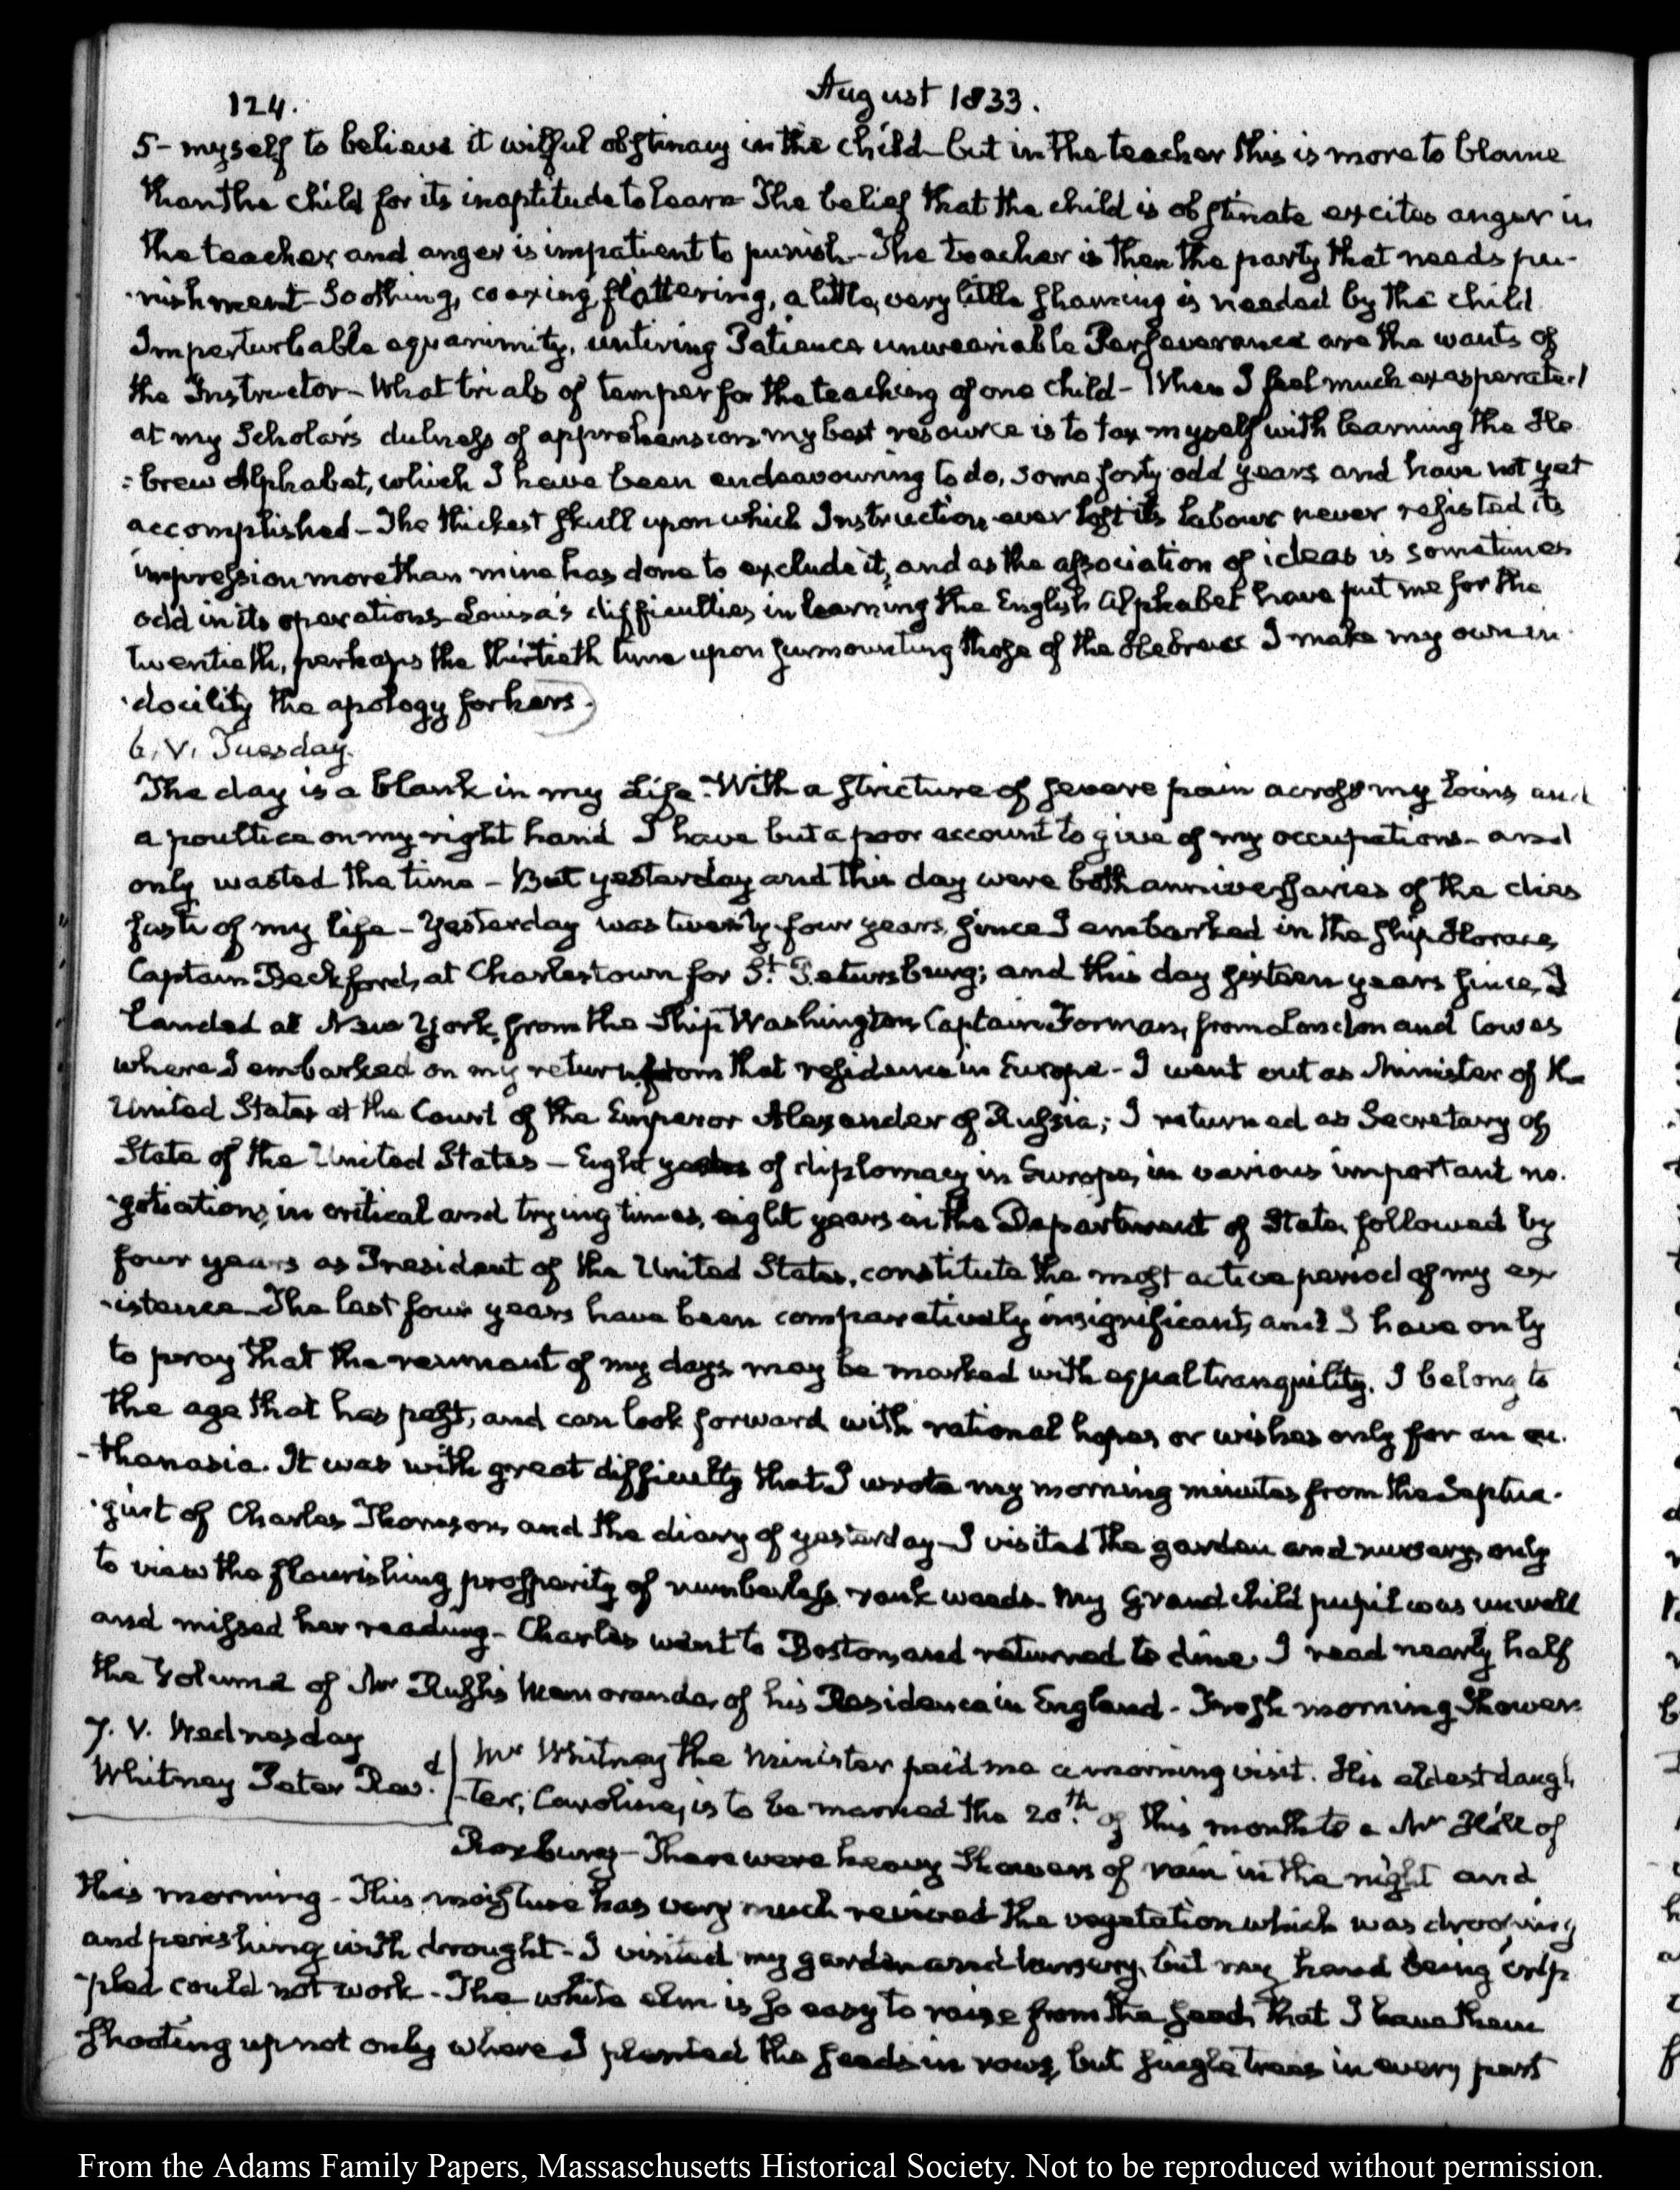 124.
August 1833.
5- myself to believe it wilful obstinacy in the child but in the teacher this is more to blame
than the child for its inaptitude to learn The belief that the child is obstinate excites anger in
the teacher and anger is impatient to punish- The teacher is then the party that needs pu-
-nishment- Soothing, coaxing, flattering, a little, very little shaming is needed by the child
Imperturbable equanimity, untiring Patience unweariable Perseverance are the wants of
the Instructor- What trials of temper for the teaching of one child- When I feel much exasperated
at my Scholar's dulness of apprehension, my best resource is to tax myself with learning the He
:brew Alphabet, which I have been endeavouring to do, some forty odd years and have not yet
accomplished- The thickest skull upon which Instruction ever lost its labour never resisted its
impression more than mine has done to exclude it, and as the association of ideas is sometimes
odd in its operations Louisa's difficulties in learning the English Alphabet have put me for the
twentieth, perhaps the thirtieth time upon surmounting those of the Hebrew I make my own in
-docility the apology for hers.
6. V. Tuesday.
The day is a blank in my Life. With a stricture of severe pain across my loins and
a poultice on my right hand I have but a poor account to give of my occupations- and
only wasted the time- But yesterday and this day were both anniversaries of the dies
fasti of my life- Yesterday was twenty-four years, since I embarked in the ship Horace,
Captain Beckford, at Charlestown for St. Petersburg; and this day sixteen years since, I
landed at New York, from the Ship Washington, Captain Forman, from London and Cowes
where I embarked on my return from that residence in Europe- I went out as Minister of the
United States at the Court of the Emperor Alexander of Russia; I returned as Secretary of
State of the United States- Eight years of diplomacy in Europe, in various important ne-
-gotiations, in critical and trying times, eight years in the Department of State, followed by
four years as President of the United States, constitute the most active period of my ex
-istence- The last four years have been comparatively insignificant, and I have only
to pray that the remnant of my days may be marked with equal tranquility. I belong to
the age that has past, and can look forward with rational hopes or wishes only for an eu-
-thanasia. It was with great difficulty that I wrote my morning minutes from the Septua-
-gint of Charles Thomson, and the diary of yesterday- I visited the garden and nursery, only
to view the flourishing prosperity of numberless rank weeds- My Grandchild pupil was unwell
and missed her reading- Charles went to Boston, and returned to dine. I read nearly half
the Volume of Mr Rush's Memoranda, of his Residence in England- Fresh morning Shower
7. V. Wednesday
Whitney Peter Revd.
Mr Whitney the Minister paid me a morning visit. His eldest daugh
-ter, Caroline, is to be married the 20th. of this month to a Mr Hall of
Roxbury- There were heavy showers of rain in the night and
this morning- This moisture has very much revived the vegetation which was drooping
and perishing with drought- I visited my garden and nursery, but my hand being crip
-pled could not work- The white elm is so easy to raise from the seed, that I have them
shooting up not only where I planted the seeds in rows, but single trees in every part
From the Adams Family Papers, Massachusetts Historical Society. Not to be reproduced without permission.